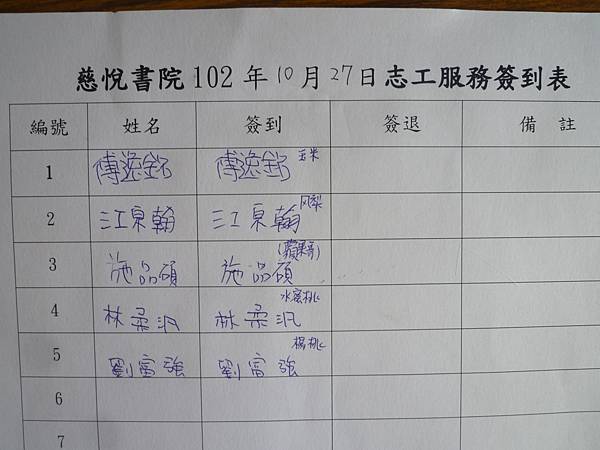 慈悅書院 102 年 10 月 27 日 志工服務簽到表
編號 姓名 簽到 簽退 備註
1 傅逸 傅逸 玉米
2 江泉翰 江泉翰 鳳梨
3 施品碩 施品碩 (蘋果哥)
4 林柔汎 林柔汎 水蜜桃
5 劉富強 劉富強 楊桃
6
7